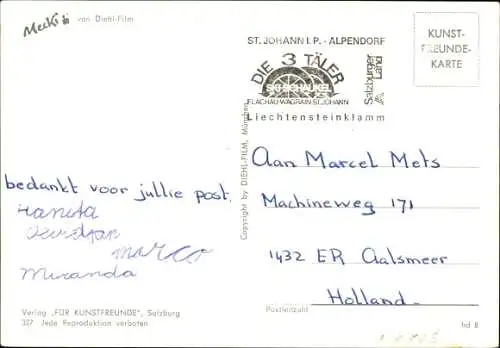 Mecki von Diehl-Film
bedankt voor jullie post.
marco
Miranda
Verlag „FÜR KUNSTFREUNDE", Salzburg
327 Jede Reproduktion verboten
Copyright by DIEHL-FILM, München
ST. JOHANN I. P. - ALPENDORF
DIE 3 TÄLER
SKI-SCHAUKEL
FLACHAU-WAGRAIN-ST.JOHANN
Liechtensteinklamm
Salzburger
Land
KUNST-
FREUNDE-
KARTE
Aan Marcel Mets
Machineweg 171
1432 ER Aalsmeer
Holland
Postleitzahl
hd 8